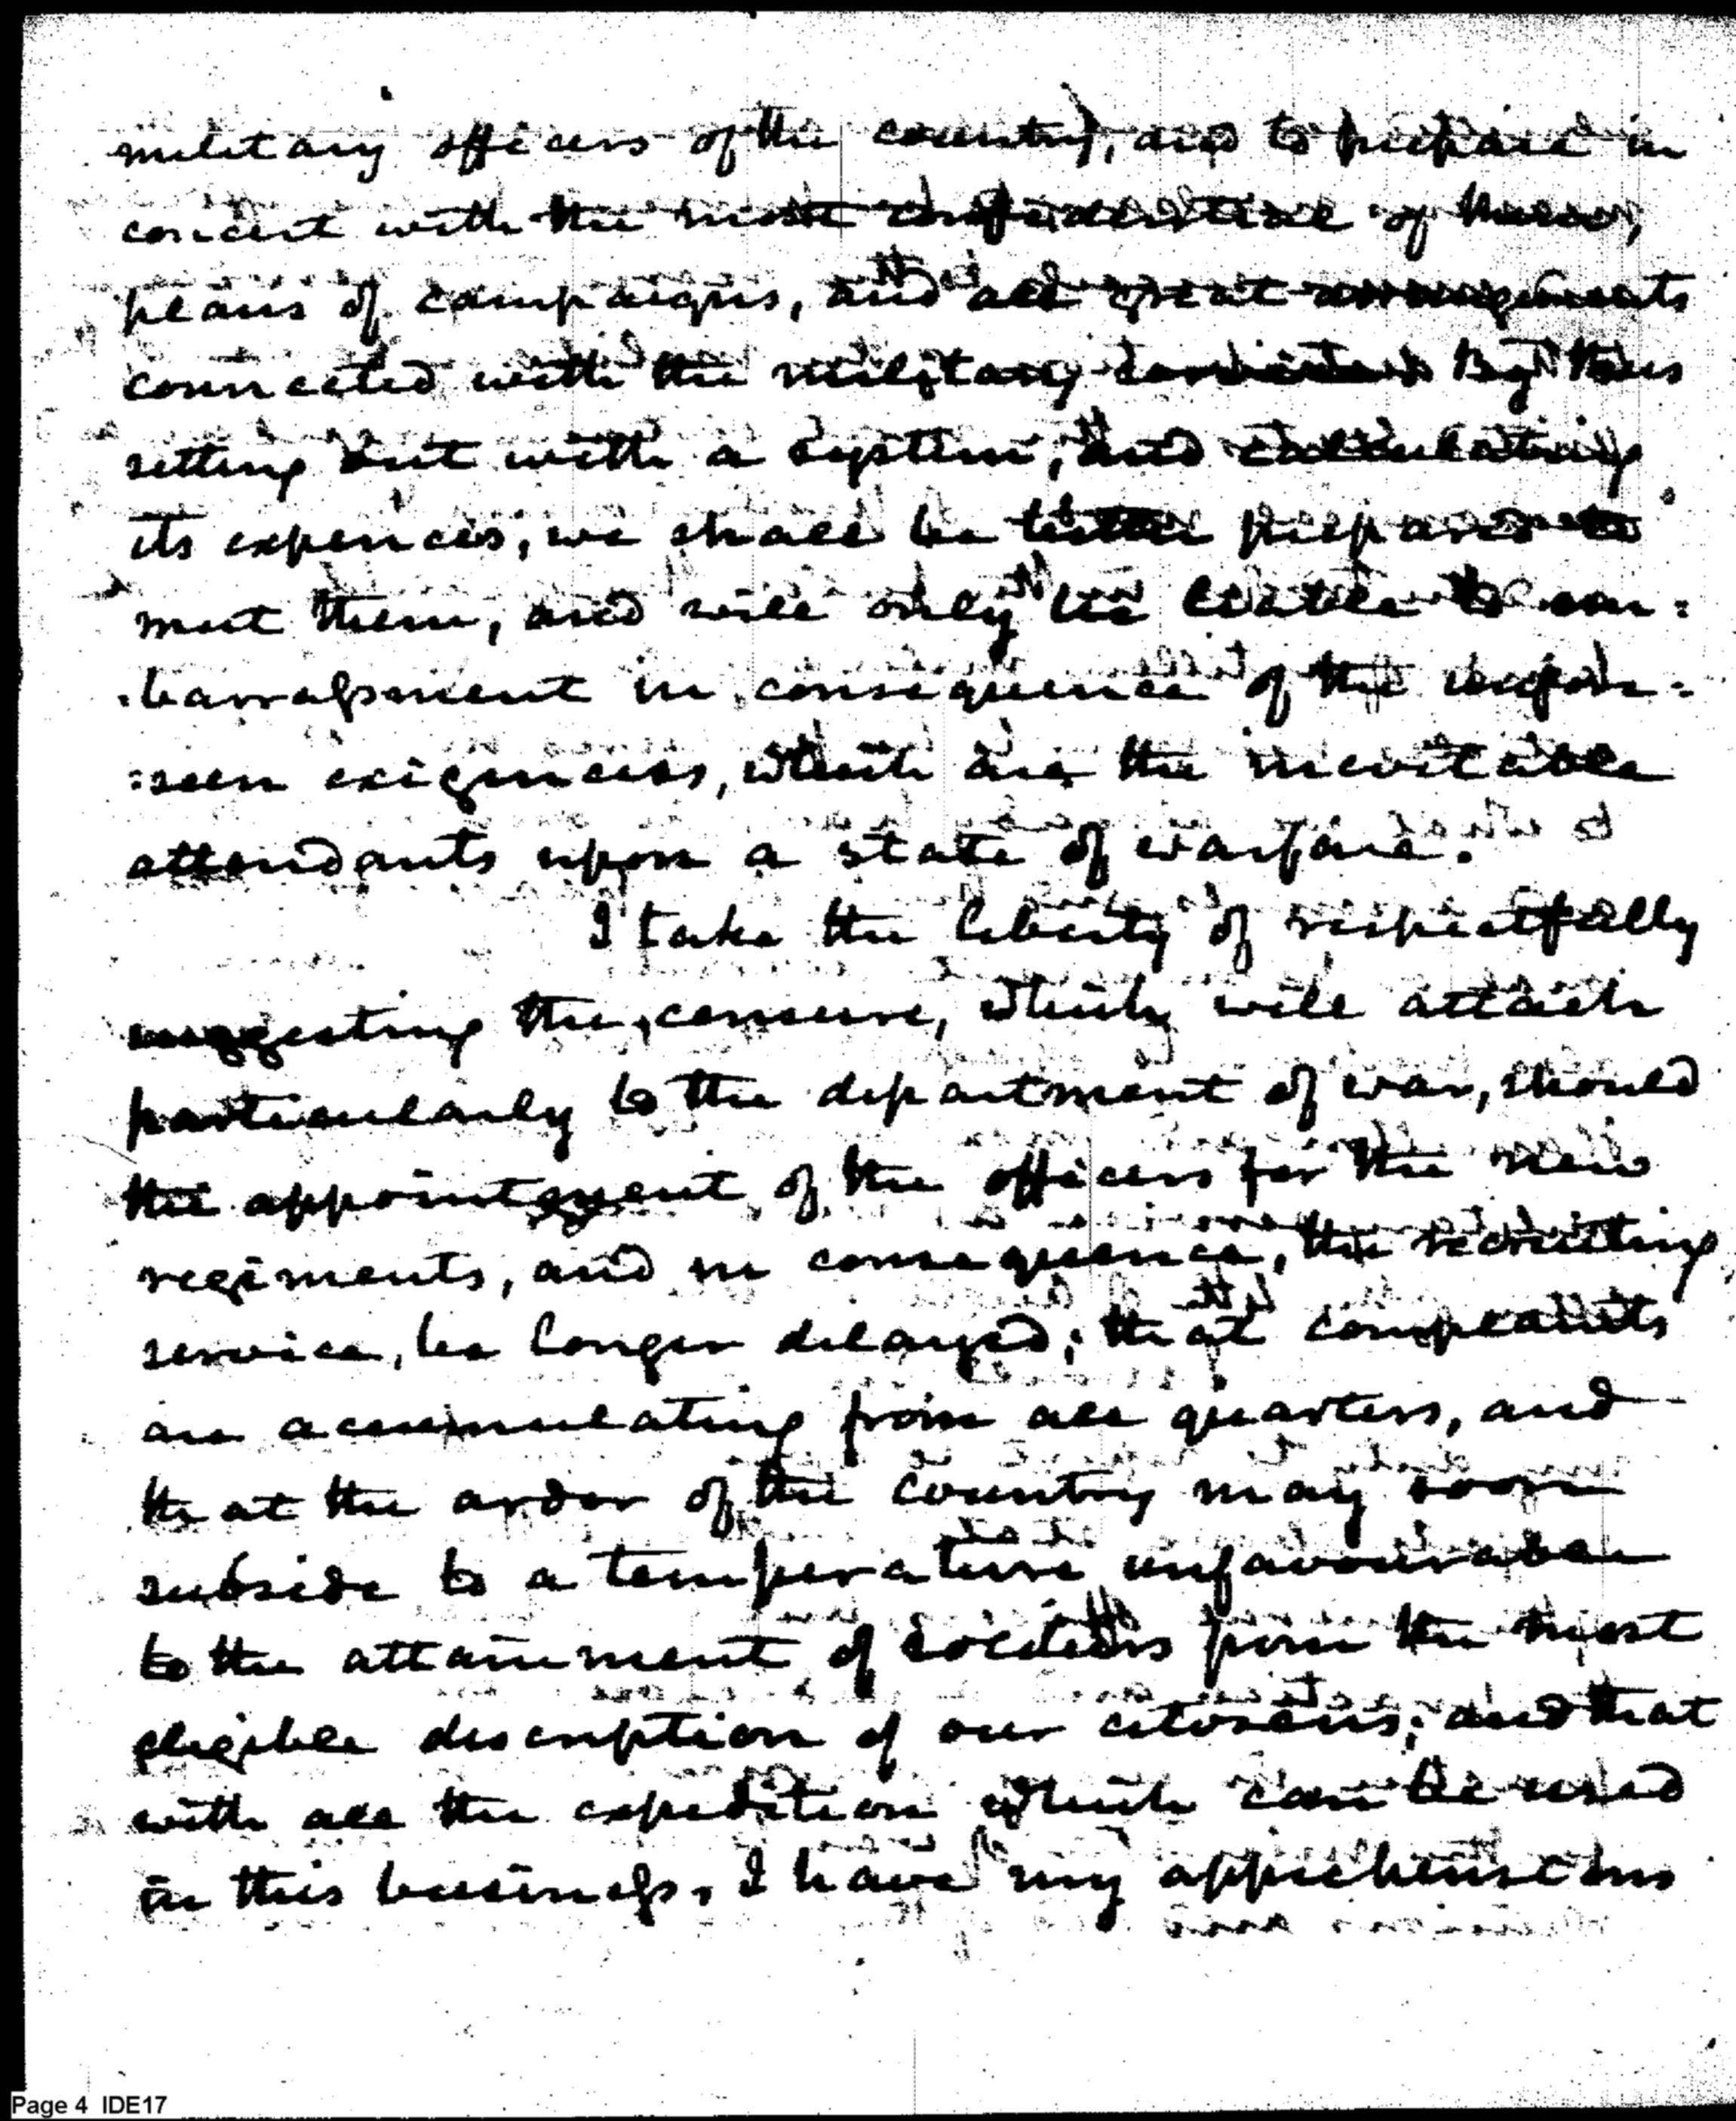 military officers of the country, and to prepare in
concert with the most confidential of them,
plans of campaigns, and all great arrangements
connected with the military By thus
setting out with a system, and calculating
its expences, we shall be better prepared to
meet them, and will only be liable to em:
:barrassment in consequence of the unfore:
:seen exigencies, which are the inevitable
attendants upon a state of warfare.
I take the liberty of respectfully
suggesting the censure, which will attach
particularly to the department of war, should
the appointment of the officers for the new
regiments, and in consequence, the recruiting
service, be longer delayed; that complaints
are accumulating from all quarters, and
that the ardor of the country may soon
subside to a temperature unfavourable
to the attainment of soldiers from the most
eligible description of our citozens; and that
with all the expedition which can be used
in this business, I have my apprehensions
Page 4 IDE17